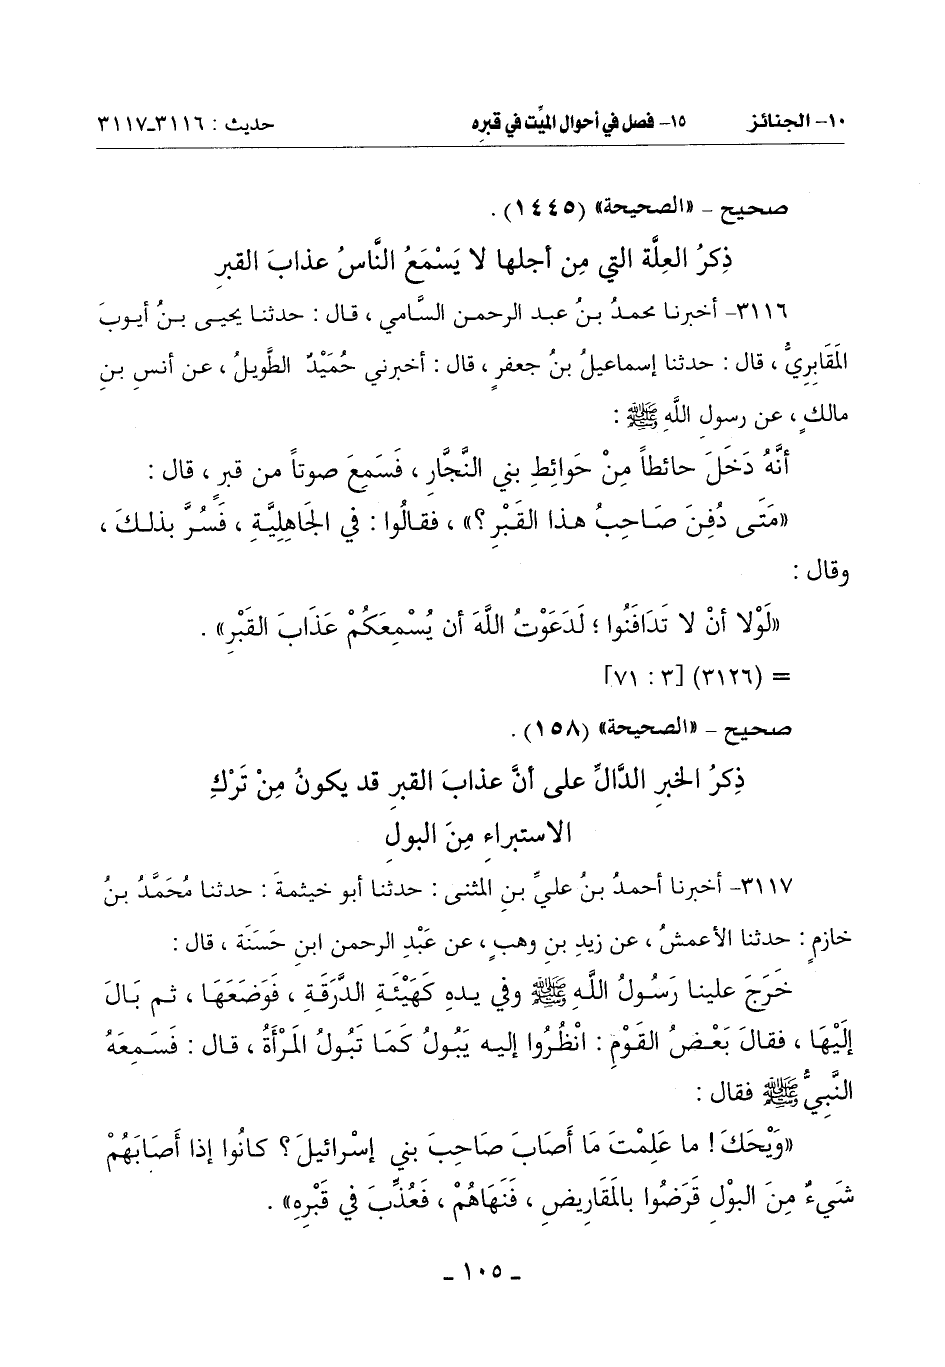 ١٠- الجنائز ١٥- فصل في أحوال الميِّت في قبرِه حديث : ٣١١٦-٣١١٧
صحيح - «الصحيحة» (١٤٤٥) .
ذِكرُ العِلَّة التي مِن أجلها لا يَسْمَعُ النَّاسُ عذابَ القبرِ
٣١١٦- أخبرنا محمدُ بنُ عبد الرحمن السَّامي ، قال : حدثنا يحيى بنُ أيوبَ
المَقَابِرِيُّ ، قال : حدثنا إسماعيلُ بنُ جعفرٍ ، قال : أخبرني حُمَيْدٌ الطَّويلُ ، عن أنسِ بنِ
مالكٍ ، عن رسولِ اللَّهِ ﷺ :
أنَّهُ دَخَلَ حائطاً مِنْ حَوائِطِ بني النَّجَّارِ ، فَسَمِعَ صوتاً من قبرٍ ، قال :
«مَتَى دُفِنَ صَاحِبُ هذا القَبْرِ ؟» ، فقالُوا : في الجَاهِلِيَّةِ ، فَسُرَّ بذلكَ ،
وقال :
«لَوْلا أنْ لا تَدَافَنُوا ؛ لَدَعَوْتُ اللَّهَ أن يُسْمِعَكُمْ عَذَابَ القَبْرِ» .
= (٣١٢٦) [٣ : ٧١]
صحيح - «الصحيحة» (١٥٨) .
ذِكرُ الخبرِ الدَّالِّ على أنَّ عذابَ القبرِ قد يكونُ مِنْ تَرْكِ
الاستبراءِ مِنَ البولِ
٣١١٧- أخبرنا أحمدُ بنُ عليِّ بنِ المثنى : حدثنا أبو خيثمةَ : حدثنا مُحَمَّدُ بنُ
خازمٍ : حدثنا الأعمشُ ، عن زيدِ بنِ وهبٍ ، عن عَبْدِ الرحمن ابنِ حَسَنَة ، قال :
خَرَجَ علينا رَسُولُ اللَّهِ ﷺ وفي يدِهِ كَهَيْئَةِ الدَّرَقَةِ ، فَوَضَعَهَا ، ثم بَالَ
إلَيْهَا ، فقالَ بَعْضُ القَوْمِ : انْظُرُوا إليه يَبُولُ كَمَا تَبُولُ المَرْأَةُ ، قال : فَسَمِعَهُ
النَّبِيُّ ﷺ فقال :
«وَيْحَكَ ! ما عَلِمْتَ مَا أَصَابَ صَاحِبَ بني إسْرائيلَ ؟ كانُوا إذا أَصَابَهُمْ
شَيءٌ مِنَ البوْلِ قَرَضُوا بالمَقَاريضِ ، فَنَهَاهُمْ ، فَعُذِّبَ في قَبْرِهِ» .
- ١٠٥ -